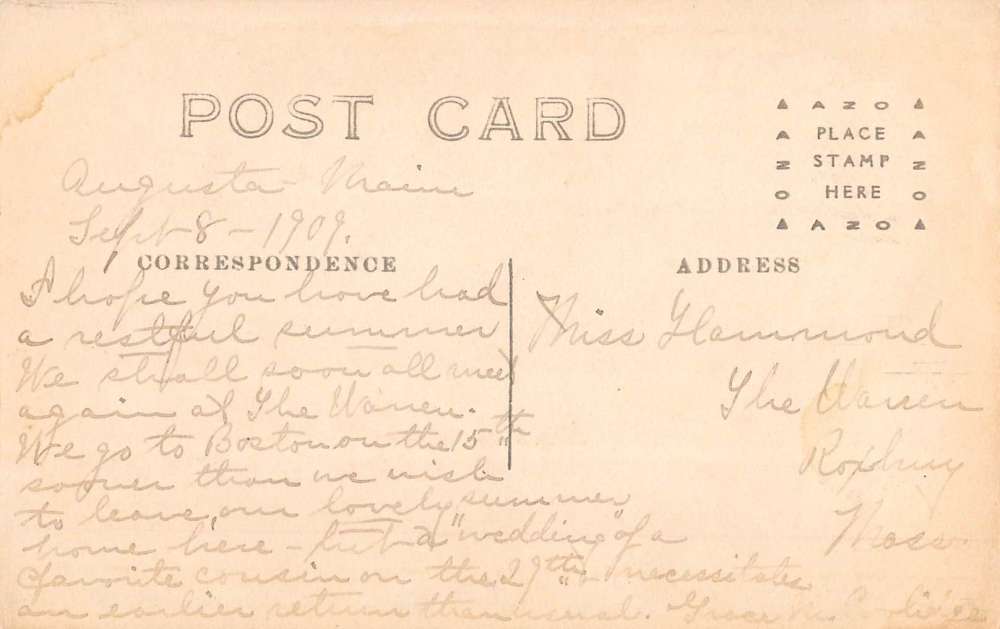 POST CARD
AZO
PLACE
STAMP
HERE
AZO
Augusta Maine
Sept 8 - 1909.
CORRESPONDENCE
ADDRESS
I hope you have had
a restful summer
We shall soon all meet
again at The Warren.
We go to Boston on the 15th
sooner than we wish
to leave our lovely summer
home here - but a "wedding" of a
favorite cousin on the 29th - necessitates
an earlier return than usual. Grace
Miss Hammond
The Warren
Roxbury
Mass